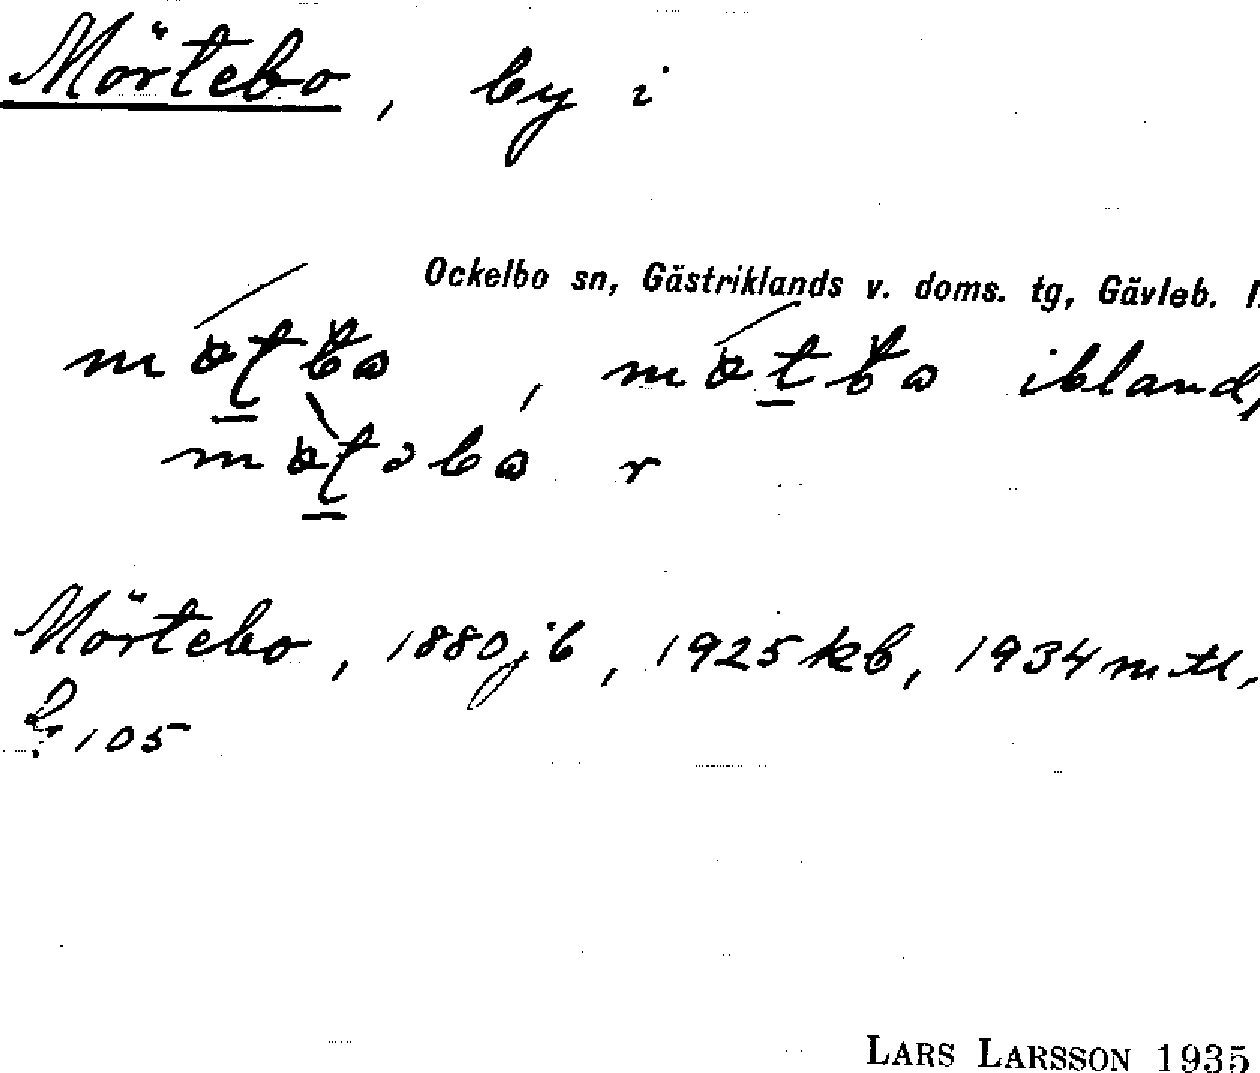 Mörtebo, by i
Ockelbo sn, Gästriklands v. doms. tg, Gävleb. l.
ibland,
r
Mörtebo, 1880 jb, 1925 kb, 1934 mtl,
105
LARS LARSSON 1935